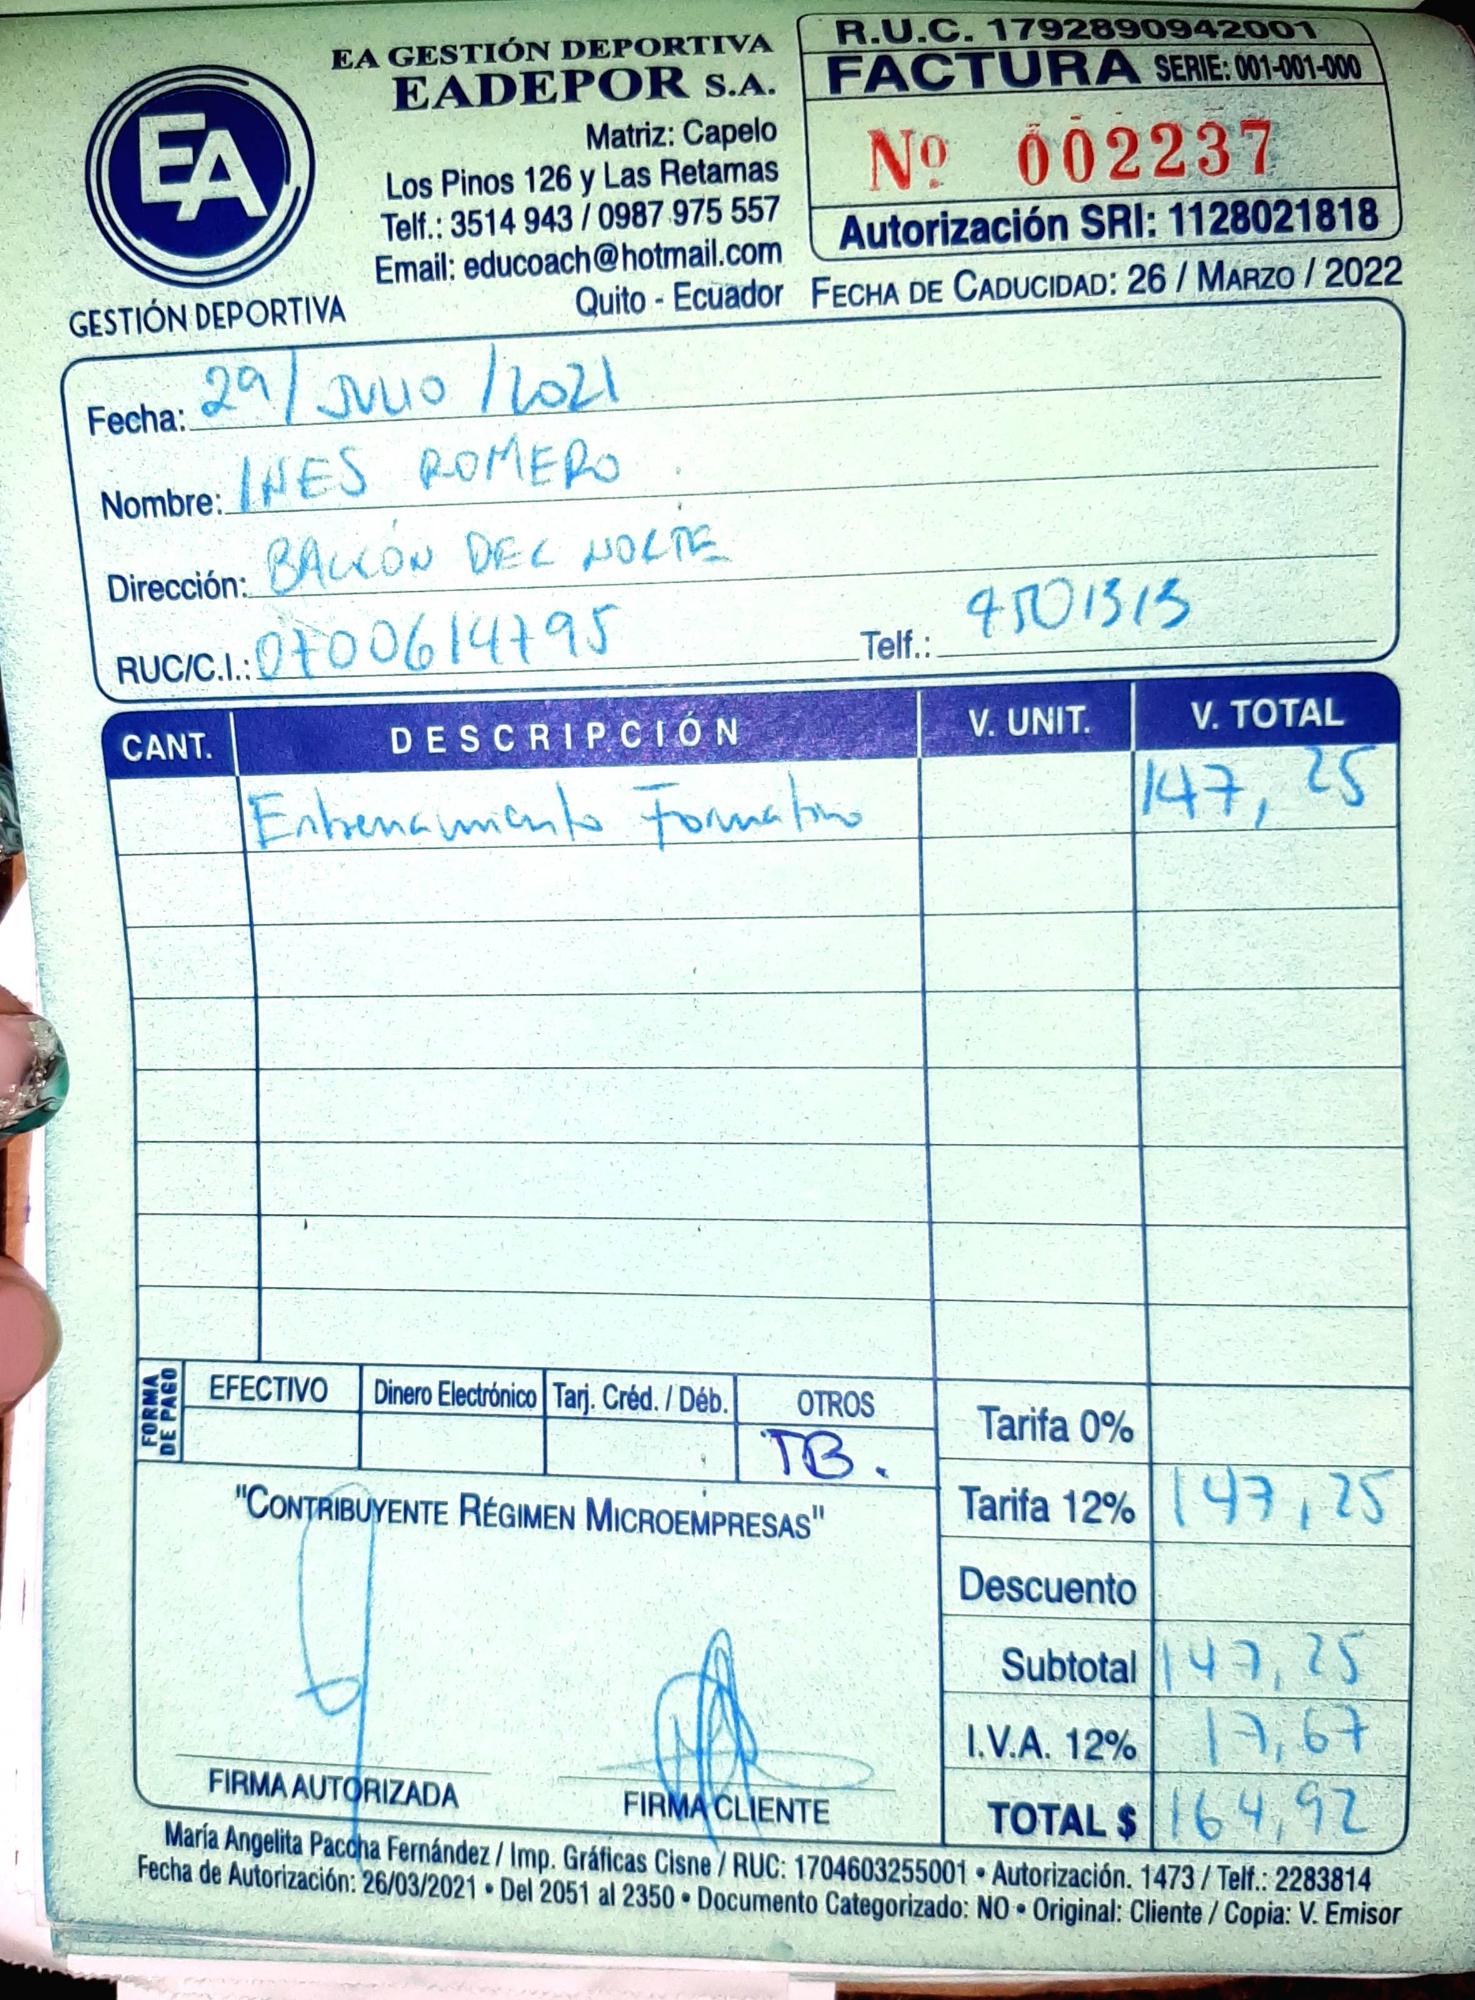 EA GESTIÓN DEPORTIVA
EADEPOR S.A.
Matriz: Capelo
Los Pinos 126 y Las Retamas
Telf.: 3514 943 / 0987 975 557
Email: educoach@hotmail.com
Quito - Ecuador
EA
GESTIÓN DEPORTIVA
R.U.C. 1792890942001
FACTURA SERIE: 001-001-000
Nº 002237
Autorización SRI: 1128021818
FECHA DE CADUCIDAD: 26 / MARZO / 2022
Fecha: 29/ JULIO /2021
Nombre: INES ROMERO
Dirección: BALCÓN DEL NORTE
RUC/C.I.: 0700614795 Telf.: 4501313
CANT. DESCRIPCIÓN V. UNIT. V. TOTAL
Entrenamiento Formativo 147,25
FORMA DE PAGO
EFECTIVO Dinero Electrónico Tarj. Créd. / Déb. OTROS
TB.
Tarifa 0%
Tarifa 12% 147,25
Descuento
Subtotal 147,25
I.V.A. 12% 17,67
TOTAL $ 164,92
"CONTRIBUYENTE RÉGIMEN MICROEMPRESAS"
FIRMA AUTORIZADA FIRMA CLIENTE
María Angelita Paccha Fernández / Imp. Gráficas Cisne / RUC: 1704603255001 • Autorización. 1473 / Telf.: 2283814
Fecha de Autorización: 26/03/2021 • Del 2051 al 2350 • Documento Categorizado: NO • Original: Cliente / Copia: V. Emisor